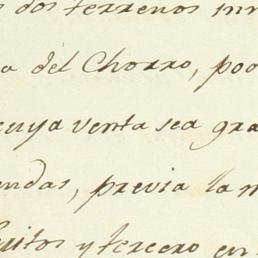 dos terrenos
a del Chorro, poo
cuya venta sea gra
endas, previa la
uitos y tercero en